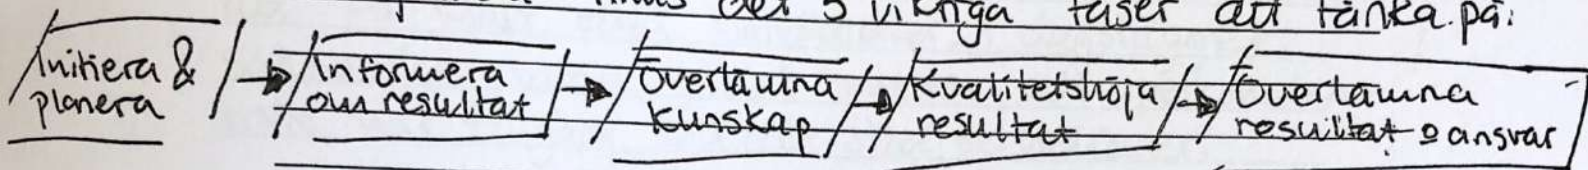 finns det 5 viktiga faser att tänka på:
Initiera &
planera
Informera
om resultat
Överlämna
kunskap
Kvalitetshöja
resultat
Överlämna
resultat & ansvar